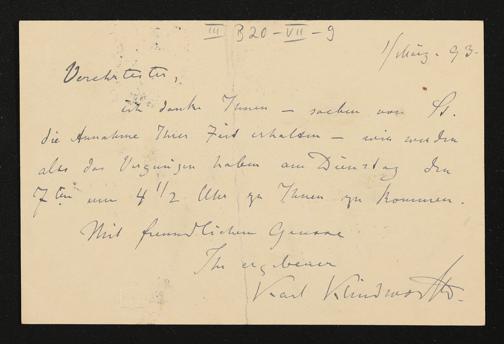 III B20-VII-9
1/März. 93.
Verehrtester,
ich danke Ihnen – soeben von
die Annahme Ihrer Zeit erhalten – wir werden
also das Vergnügen haben am Dienstag den
7ten um 4 1/2 Uhr zu Ihnen zu kommen.
Mit freundlichem Grusse
Ihr ergebener
Karl Klindworth.